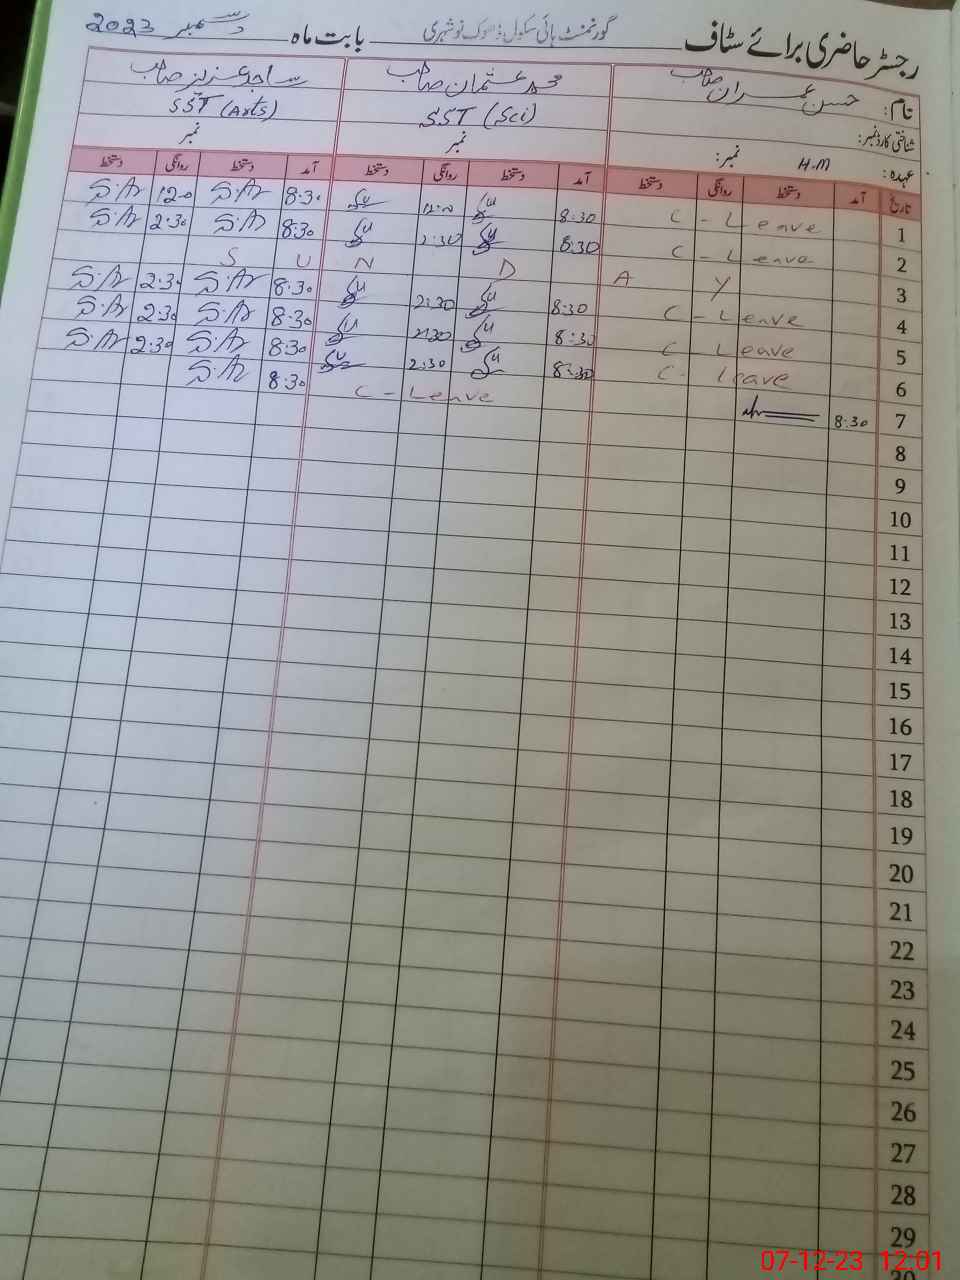 رجسٹر حاضری برائے سٹاف گورنمنٹ ہائی سکول ڈھوک نوشہری بابت ماہ دسمبر 2023
نام: حسن عمران صاحب محمد عثمان صاحب ساجد عزیز صاحب
شناختی کارڈ نمبر: SST (Sci) SST (Arts)
عہدہ: H.M نمبر: نمبر نمبر
تاریخ آمد دستخط روانگی دستخط آمد دستخط روانگی دستخط آمد دستخط روانگی دستخط
1 C - Leave 8:30 12:0 8:30 S.Az 12:0 S.Az
2 C - Leave 8:30 2:30 8:30 S.Az 2:30 S.Az
3 S U N D A Y
4 C - Leave 8:30 2:30 8:30 S.Az 2:30 S.Az
5 C - Leave 8:30 2:30 8:30 S.Az 2:30 S.Az
6 C - Leave 8:30 2:30 8:30 S.Az 2:30 S.Az
7 8:30 C - Leave 8:30 S.Az
8
9
10
11
12
13
14
15
16
17
18
19
20
21
22
23
24
25
26
27
28
29
07-12-23 12:01